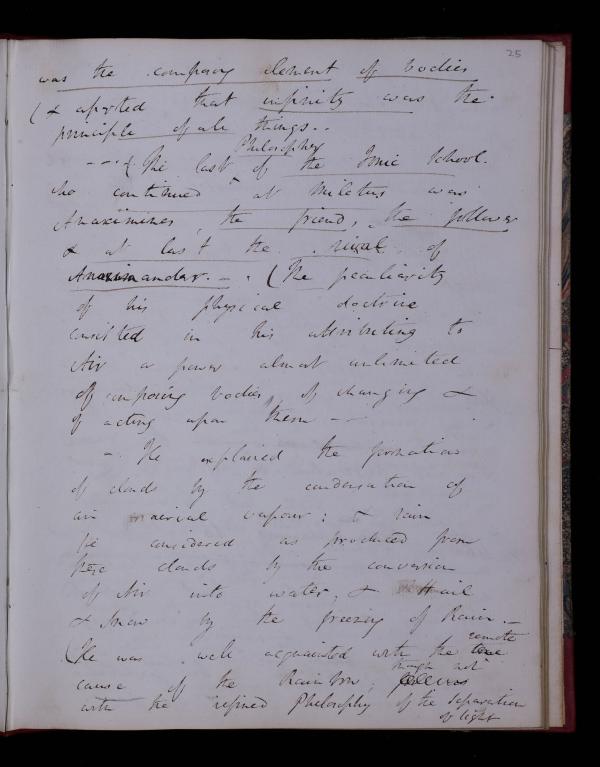 25
was the composing element of bodies
(& asserted that infinity was the
principle of all things..
Philosophy
--{ The last of the Ionic School.
who continued at Miletus was
Anaximines, the friend, the follower
& at last the rival of
Anaximander. - . (The peculiarity
of his physical doctrine
consisted in his attributing to
Air a power almost unlimited
of composing bodies, of changing &
of acting upon them --
-. He explained the formation
of clouds by the condensation of
aerial vapour: & rain
he considered as produced from
these clouds by the conversion
of Air into water, & Hail
& Snow by the freezing of Rain. -
remote
(He was well acquainted with the true
though not
cause of the Rainbow;
with the refined Philosophy of the separation
of light